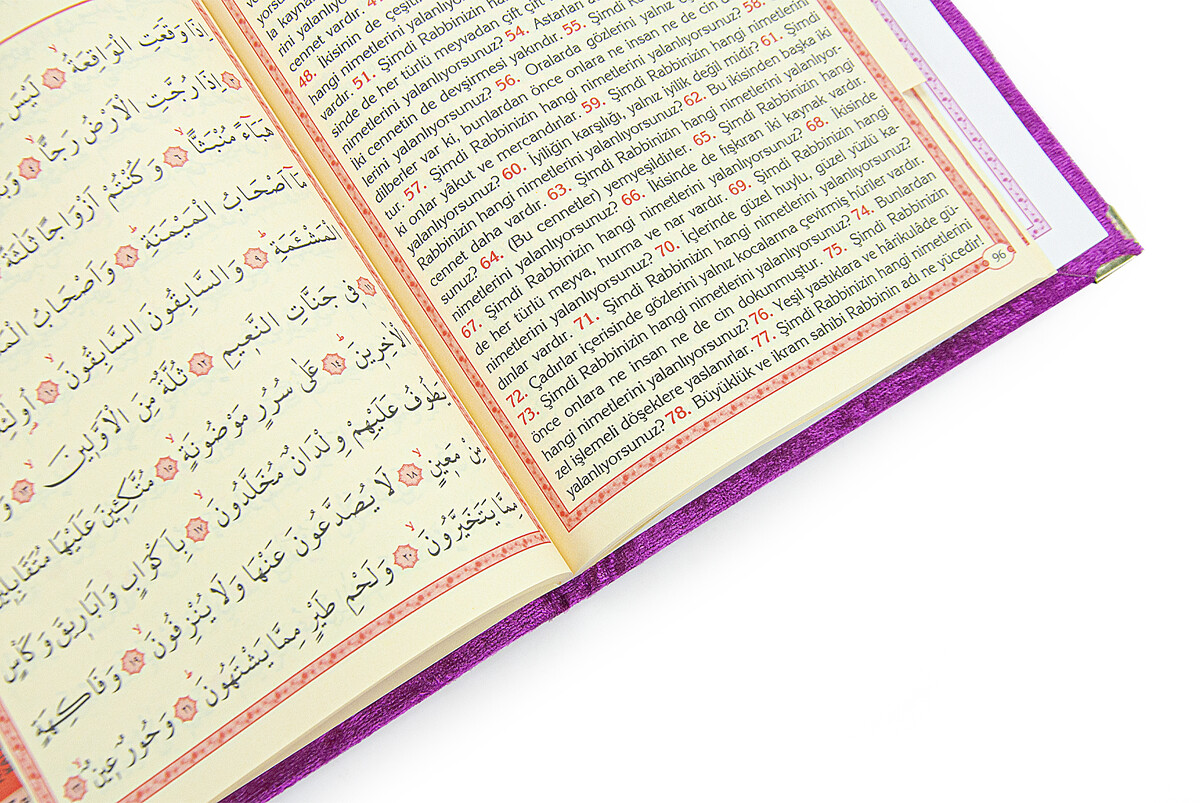 la kaynar
rini yalanlıyo
cennet vardır.
48. İkisinin de çeşitli
hangi nimetlerini yalanlıyor
vardır. 51. Şimdi Rabbinizin
sinde de her türlü meyvadan çift çift
nimetlerini yalanlıyorsunuz? 54. Astarları
iki cennetin de devşirmesi yakındır. 55. Şimdi
lerini yalanlıyorsunuz? 56. Oralarda gözlerini yalnız
dilberler var ki, bunlardan önce onlara ne insan ne de cin
tur. 57. Şimdi Rabbinizin hangi nimetlerini yalanlıyorsunuz? 58.
ki onlar yâkut ve mercandırlar. 59. Şimdi Rabbinizin hangi nimetlerini
yalanlıyorsunuz? 60. İyiliğin karşılığı, yalnız iyilik değil midir? 61. Şimdi
Rabbinizin hangi nimetlerini yalanlıyorsunuz? 62. Bu ikisinden başka iki
cennet daha vardır. 63. Şimdi Rabbinizin hangi nimetlerini yalanlıyor-
sunuz? 64. (Bu cennetler) yemyeşildirler. 65. Şimdi Rabbinizin hangi
nimetlerini yalanlıyorsunuz? 66. İkisinde de fışkıran iki kaynak vardır.
67. Şimdi Rabbinizin hangi nimetlerini yalanlıyorsunuz? 68. İkisinde
de her türlü meyva, hurma ve nar vardır. 69. Şimdi Rabbinizin hangi
nimetlerini yalanlıyorsunuz? 70. İçlerinde güzel huylu, güzel yüzlü ka-
dınlar vardır. 71. Şimdi Rabbinizin hangi nimetlerini yalanlıyorsunuz?
72. Çadırlar içerisinde gözleri yalnız kocalarına çevirmiş hûriler vardır.
73. Şimdi Rabbinizin hangi nimetlerini yalanlıyorsunuz? 74. Bunlardan
önce onlara ne insan ne de cin dokunmuştur. 75. Şimdi Rabbinizin
hangi nimetlerini yalanlıyorsunuz? 76. Yeşil yastıklara ve hârikulâde gü-
zel işlemeli döşeklere yaslanırlar. 77. Şimdi Rabbinizin hangi nimetlerini
yalanlıyorsunuz? 78. Büyüklük ve ikram sahibi Rabbinin adı ne yücedir!
96
اِذَا وَقَعَتِ الْوَاقِعَةُ ﴿١﴾ لَيْسَ
﴿٣﴾ اِذَا رُجَّتِ الْاَرْضُ رَجًّا ﴿٤﴾
هَبَٓاءً مُنْبَثًّا ﴿٦﴾ وَكُنْتُمْ اَزْوَاجًا ثَلٰثَةً
مَٓا اَصْحَابُ الْمَيْمَنَةِ ﴿٨﴾ وَاَصْحَابُ
الْمَشْـَٔمَةِ ﴿٩﴾ وَالسَّابِقُونَ السَّابِقُونَ ﴿١٠﴾
﴿١١﴾ فِي جَنَّاتِ النَّعِيمِ ﴿١٢﴾ ثُلَّةٌ مِنَ الْاَوَّلِينَ ﴿١٣﴾
الْاٰخِرِينَ ﴿١٤﴾ عَلٰى سُرُرٍ مَوْضُونَةٍ ﴿١٥﴾ مُتَّكِـِٔينَ عَلَيْهَا مُتَقَابِلِينَ
يَطُوفُ عَلَيْهِمْ وِلْدَانٌ مُخَلَّدُونَ ﴿١٧﴾ بِاَكْوَابٍ وَاَبَارِيقَ وَكَأْسٍ
مِنْ مَعِينٍ ﴿١٨﴾ لَا يُصَدَّعُونَ عَنْهَا وَلَا يُنْزِفُونَ ﴿١٩﴾ وَفَاكِهَةٍ
مِمَّا يَتَخَيَّرُونَ ﴿٢٠﴾ وَلَحْمِ طَيْرٍ مِمَّا يَشْتَهُونَ ﴿٢١﴾ وَحُورٌ عِينٌ ﴿٢٢﴾